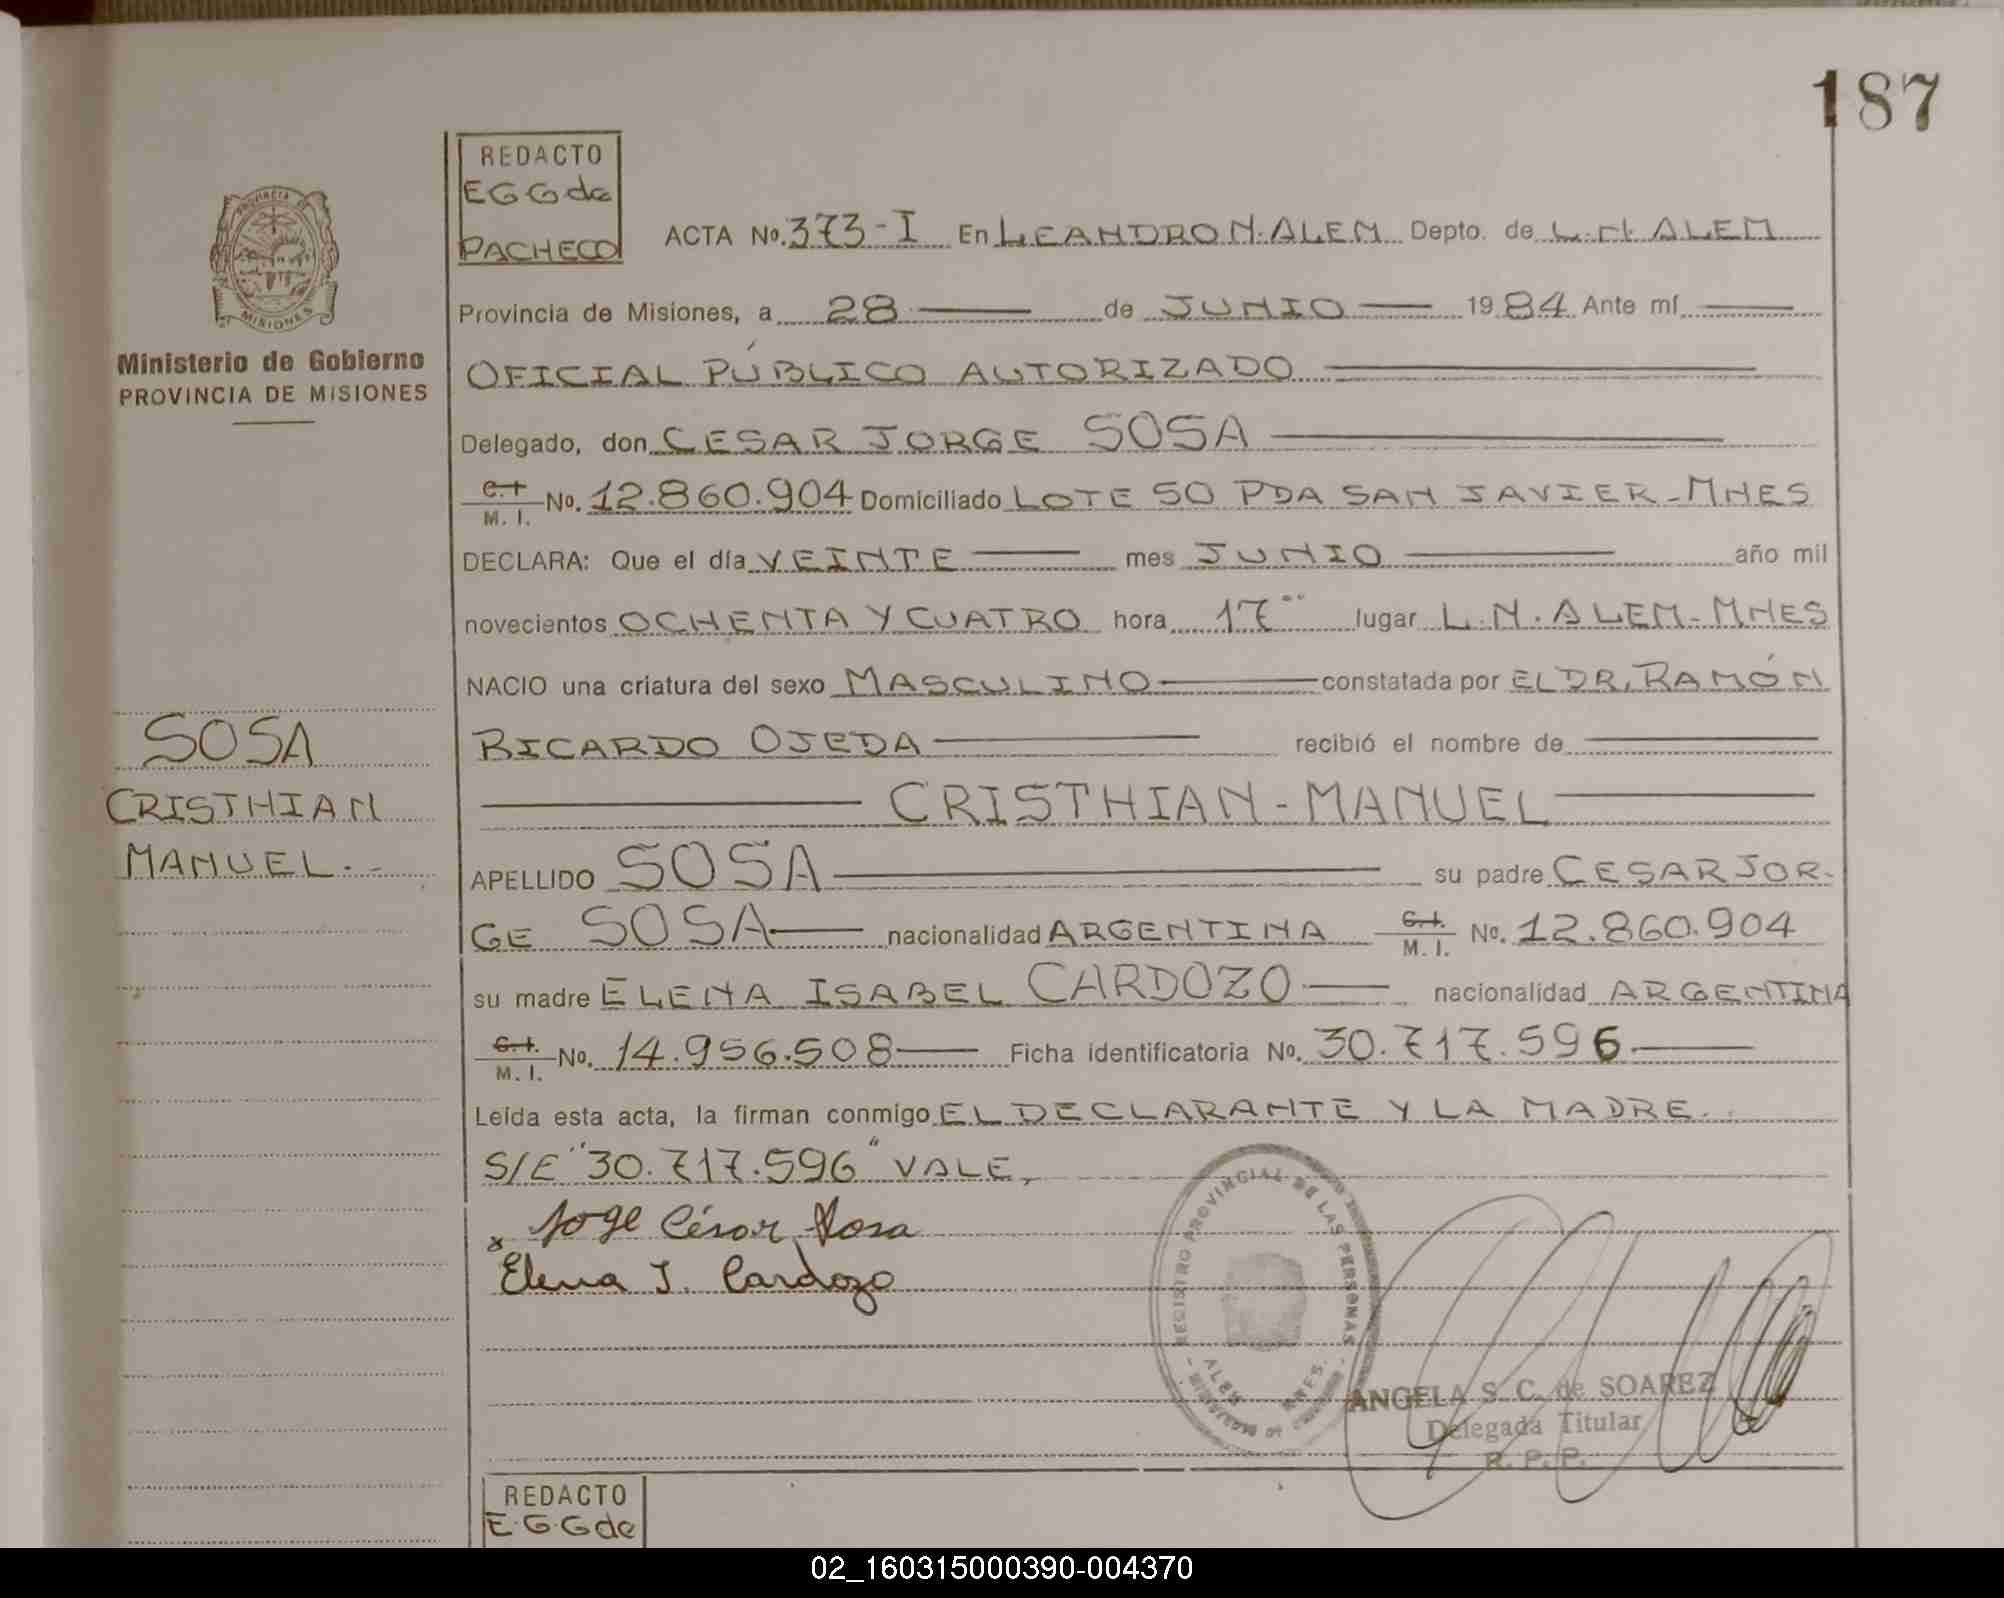 187
REDACTO
EGG de
PACHECO
ACTA No. 373-I En LEANDRO N. ALEM Depto. de L.N. ALEM
PROVINCIA DE
MISIONES
Ministerio de Gobierno
PROVINCIA DE MISIONES
Provincia de Misiones, a 28 de JUNIO 1984 Ante mí
OFICIAL PÚBLICO AUTORIZADO
Delegado, don CESAR JORGE SOSA
C.I. M. I. No. 12.860.904 Domiciliado LOTE 50 PDA SAN JAVIER-MNES
DECLARA: Que el día VEINTE mes JUNIO año mil
novecientos OCHENTA Y CUATRO hora 17" lugar L.N. ALEM-MNES
NACIO una criatura del sexo MASCULINO constatada por EL DR. RAMÓN
RICARDO OJEDA recibió el nombre de
CRISTHIAN-MANUEL
SOSA
CRISTHIAN
MANUEL.-
APELLIDO SOSA su padre CESAR JOR-
GE SOSA nacionalidad ARGENTINA C.I. M. I. No. 12.860.904
su madre ELENA ISABEL CARDOZO nacionalidad ARGENTINA
C.I. M. I. No. 14.956.508 Ficha identificatoria No. 30.717.596
Leída esta acta, la firman conmigo EL DECLARANTE Y LA MADRE..
S/E "30.717.596" VALE,
x Joge César Sosa
Elena I. Cardozo
REGISTRO PROVINCIAL DE LAS PERSONAS
ALEM MNES.
ANGELA S. C. de SOAREZ
Delegada Titular
R. P. P.
REDACTO
E.G.G de
02_160315000390-004370